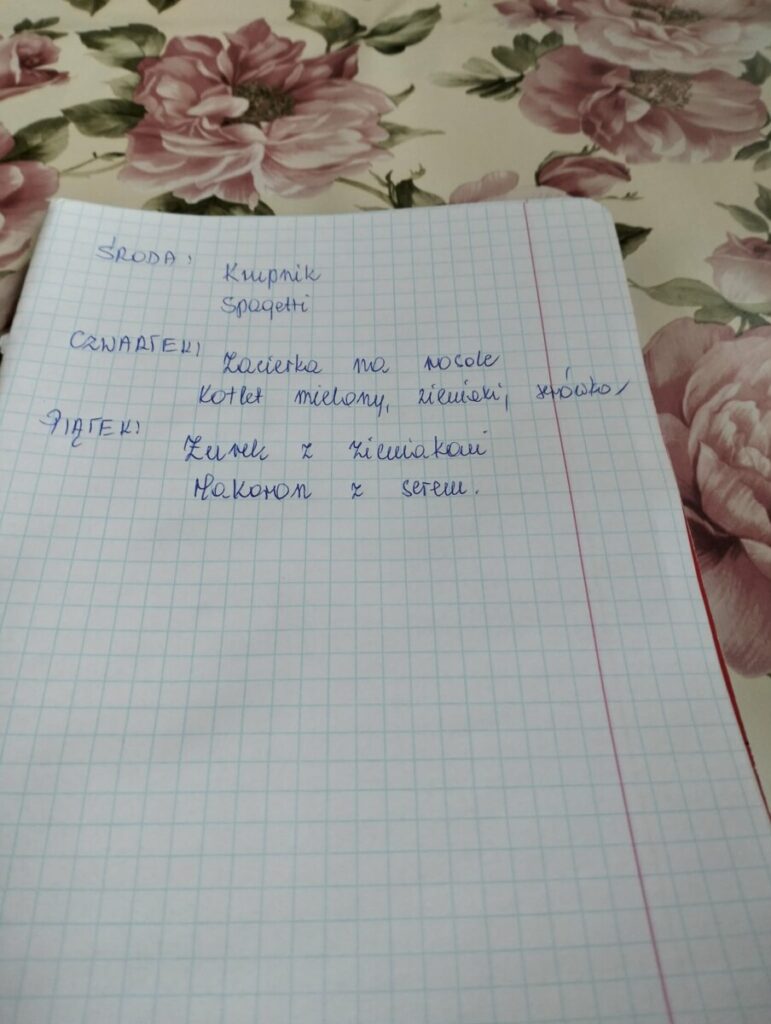 ŚRODA:
Krupnik
Spagetti
CZWARTEK:
Zacierka na rosole
Kotlet mielony, ziemiaki, surówka
PIĄTEK:
Żurek z ziemiakami
Makaron z serem.